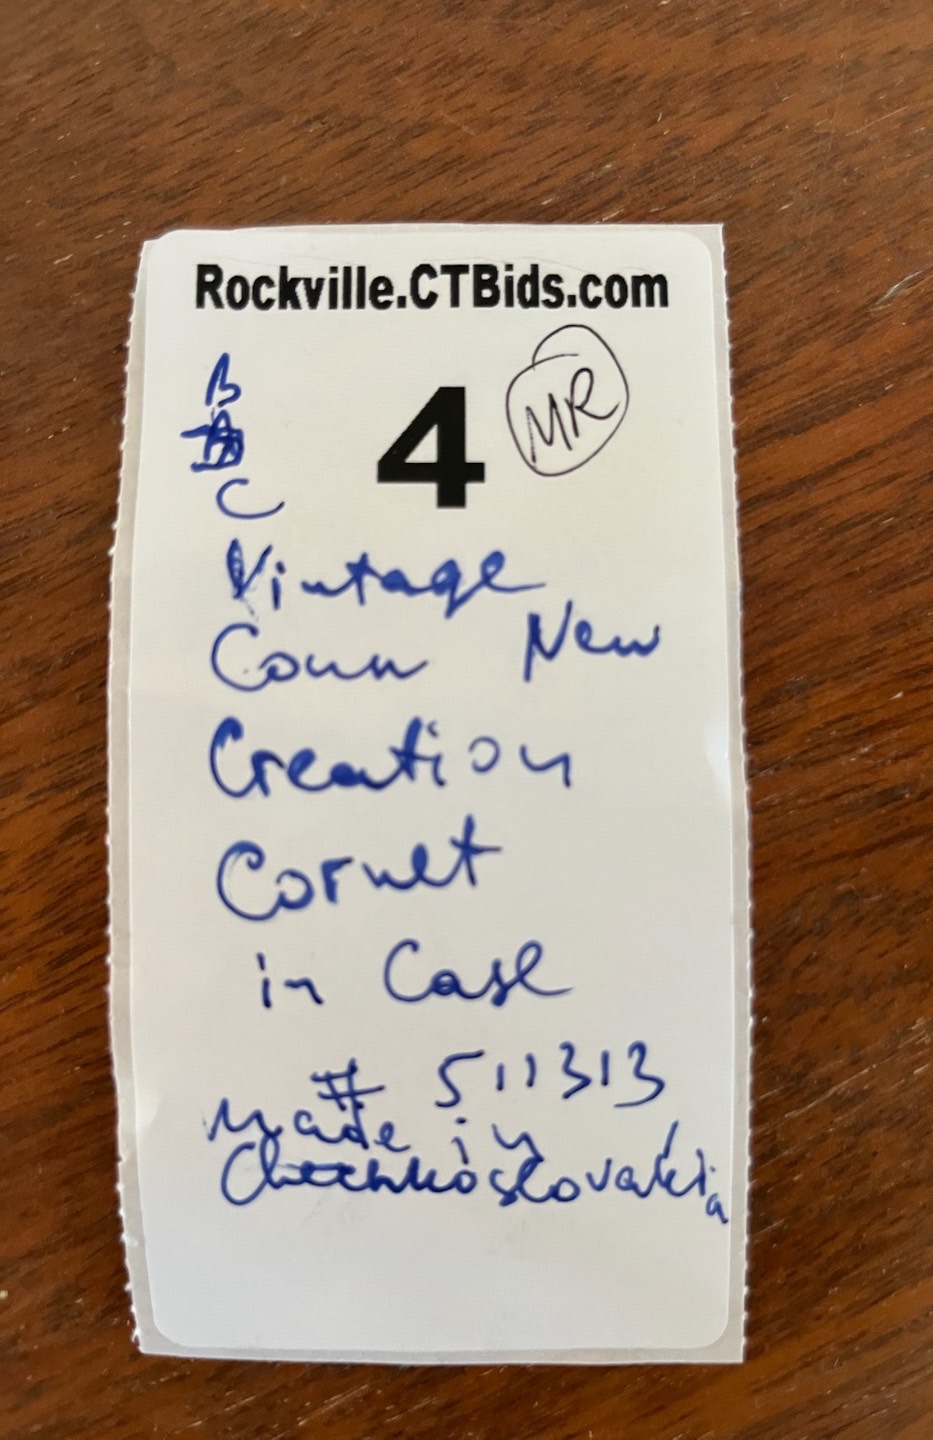 Rockville.CTBids.com
B
4 MR
C
Vintage
Conn New
Creation
Cornet
in Case
# 511313
made in
Chechkoslovakia